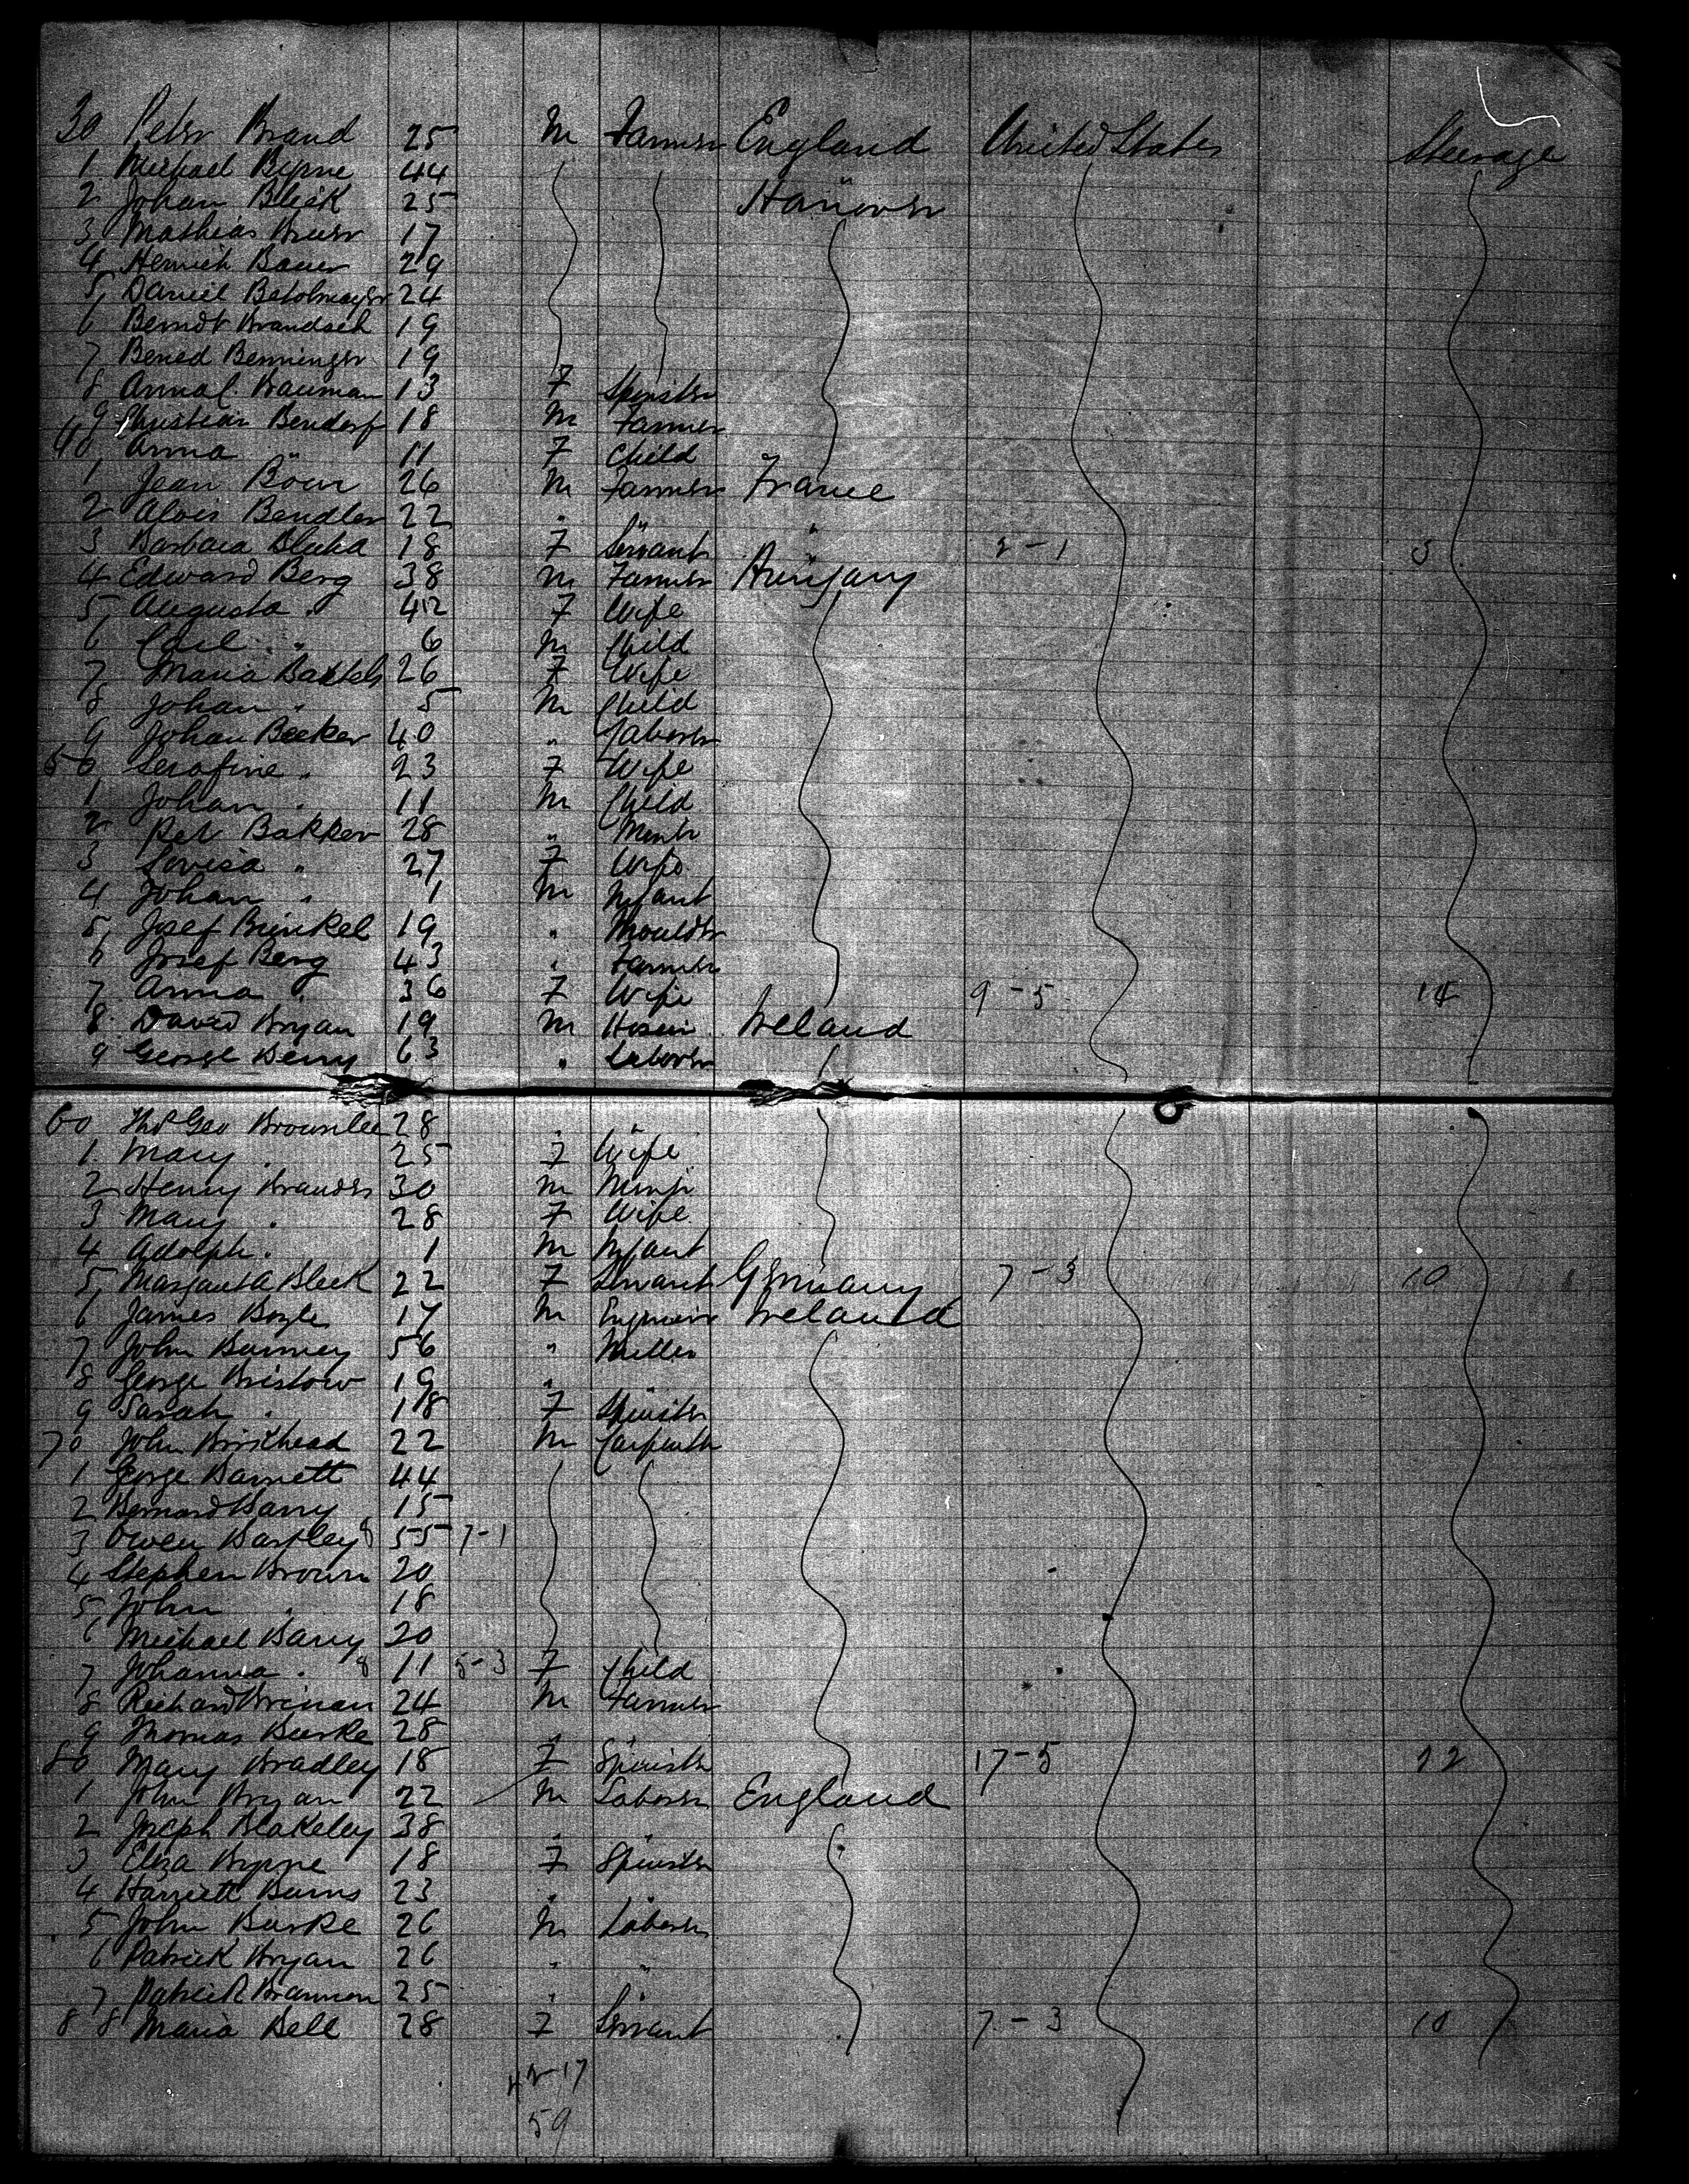 30 Peter Brand 25 M Farmer England United States Steerage
1 Michael Byrne 44
2 Johan Bleik 25 Hanover
3 Mathias Breer 17
4 Henrich Bauer 29
5 Daniel 24
6 Berndt Brandsch 19
7 Bened Benninger 19
8 Anna C. Bauman 13 F Spinster
9 Christian Bendorf 18 M Farmer
40 Anna " 11 F Child
1 Jean 26 M Farmer France
2 Alois Bendler 22 " " "
3 Barbara 18 F Servant " 2-1 3
4 Edward Berg 38 M Farmer Hungary
5 Augusta " 42 F Wife
6 Carl " 6 M Child
7 Maria Bartels 26 F Wife
8 Johan " 5 M Child
9 Johan Becker 40 " Laborer
50 Serafine " 23 F Wife
1 Johan " 11 M Child
2 Pet Bakker 28 "
3 Lovisa " 27 F Wife
4 Johan " 1 M Infant
5 Josef Brinkel 19 " Moulder
6 Josef Berg 43 " Farmer
7 Anna " 36 F Wife 9-5 14
8 David Bryan 19 M Ireland
9 George Berry 63 " Laborer
60 Thos Geo Brownlee 28 " "
1 Mary " 25 F Wife
2 Henry Brander 30 M
3 Mary " 28 F Wife
4 Adolph " 1 M Infant
5 Margaretta Bleek 22 F Servant Germany 7-3 10
6 James Boyle 17 M Engineer Ireland
7 John Burney 56 " Miller
8 George Bristow 19 " "
9 Sarah " 18 F Spinster
70 John Birkhead 22 M Carpenter
1 George Barnett 44
2 Bernard Barry 15
3 Owen Bartley 55 7-1
4 Stephen Brown 20
5 John " 18
6 Michael Barry 20
7 Johanna " 8 11 5-3 F Child
8 Richard Brinan 24 M Farmer
9 Thomas Burke 28 " "
80 Mary Bradley 18 F Spinster 17-5 22
1 John Bryan 22 M Laborer England
2 Joseph Blakeley 38 " "
3 Eliza Byrne 18 F Spinster
4 Harriett Burns 23 " "
5 John Burke 26 M Laborer
6 Patrick Bryan 26 " "
7 Patrick Brannon 25 " "
88 Maria Bell 28 F Servant 7-3 10
42-17
59